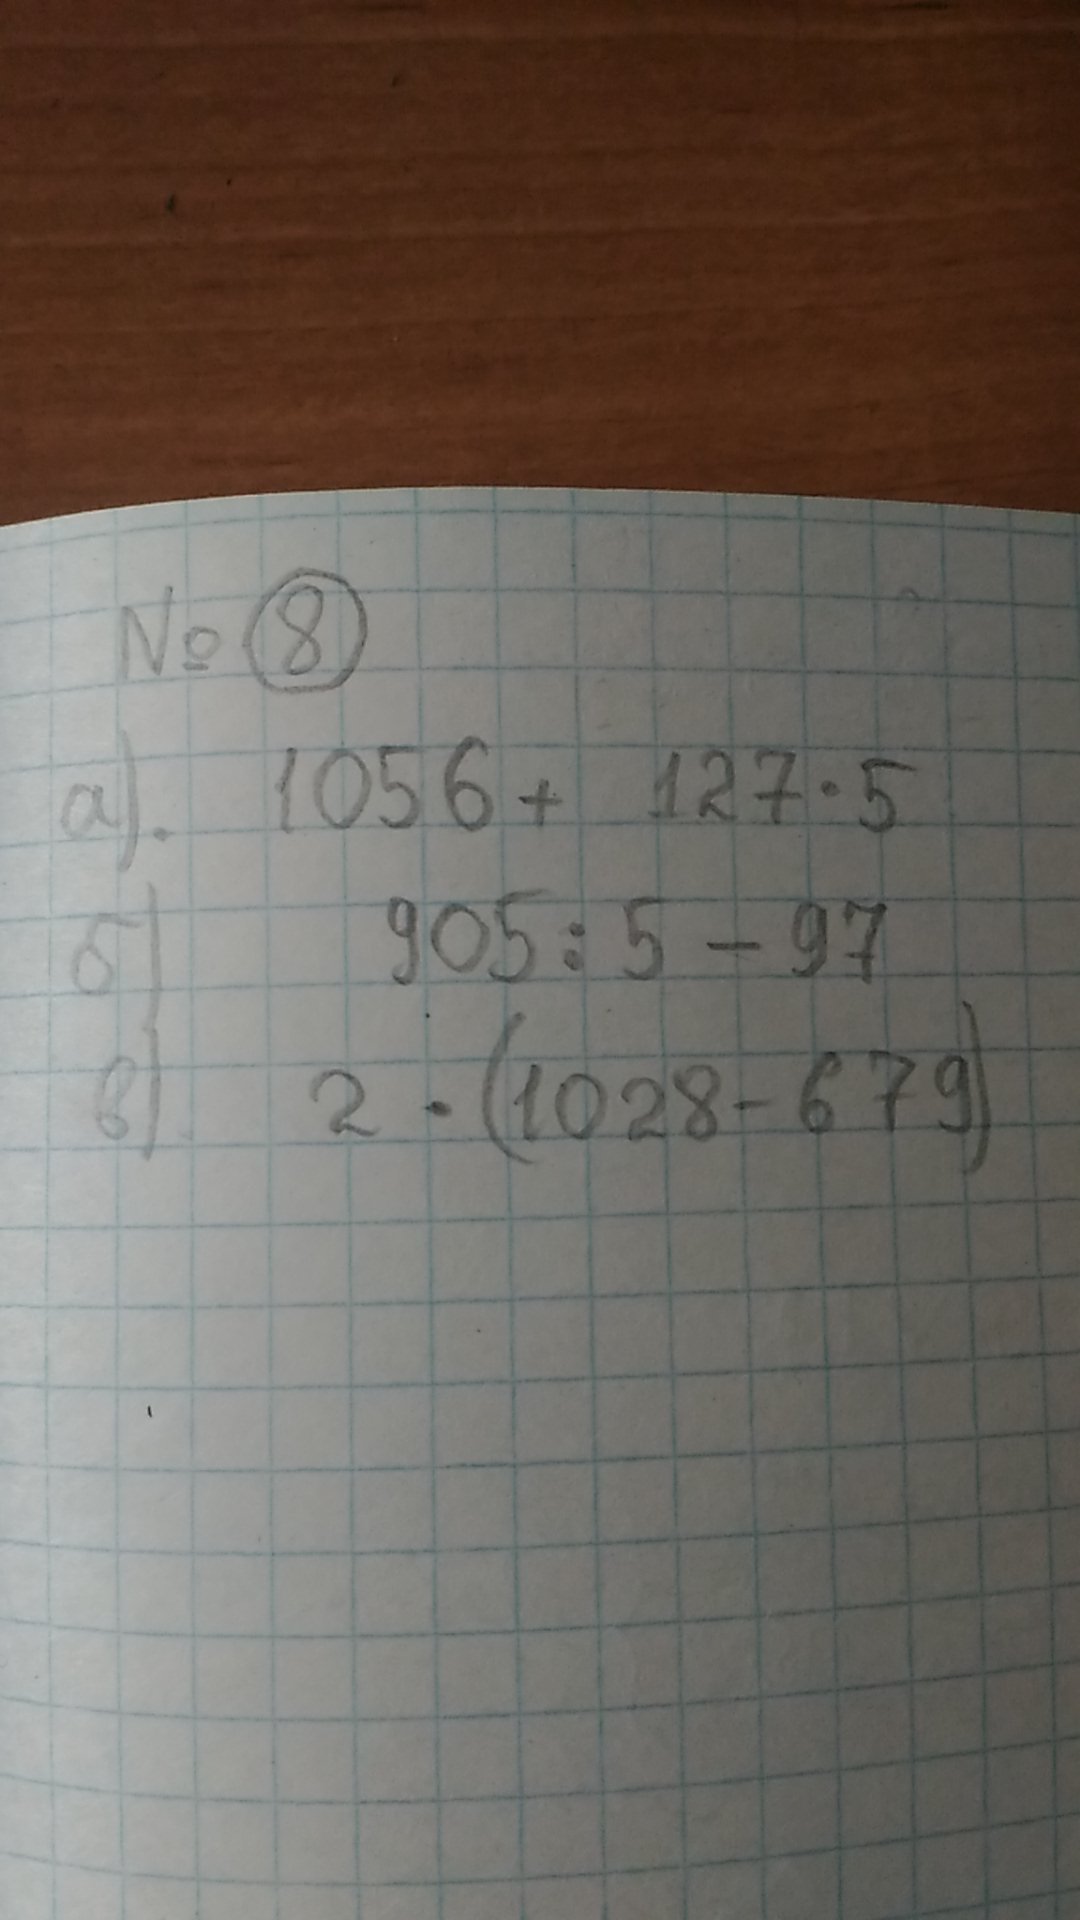 № 8
а). 1056 + 127 · 5
б) 905 : 5 - 97
в) 2 · (1028 - 679)